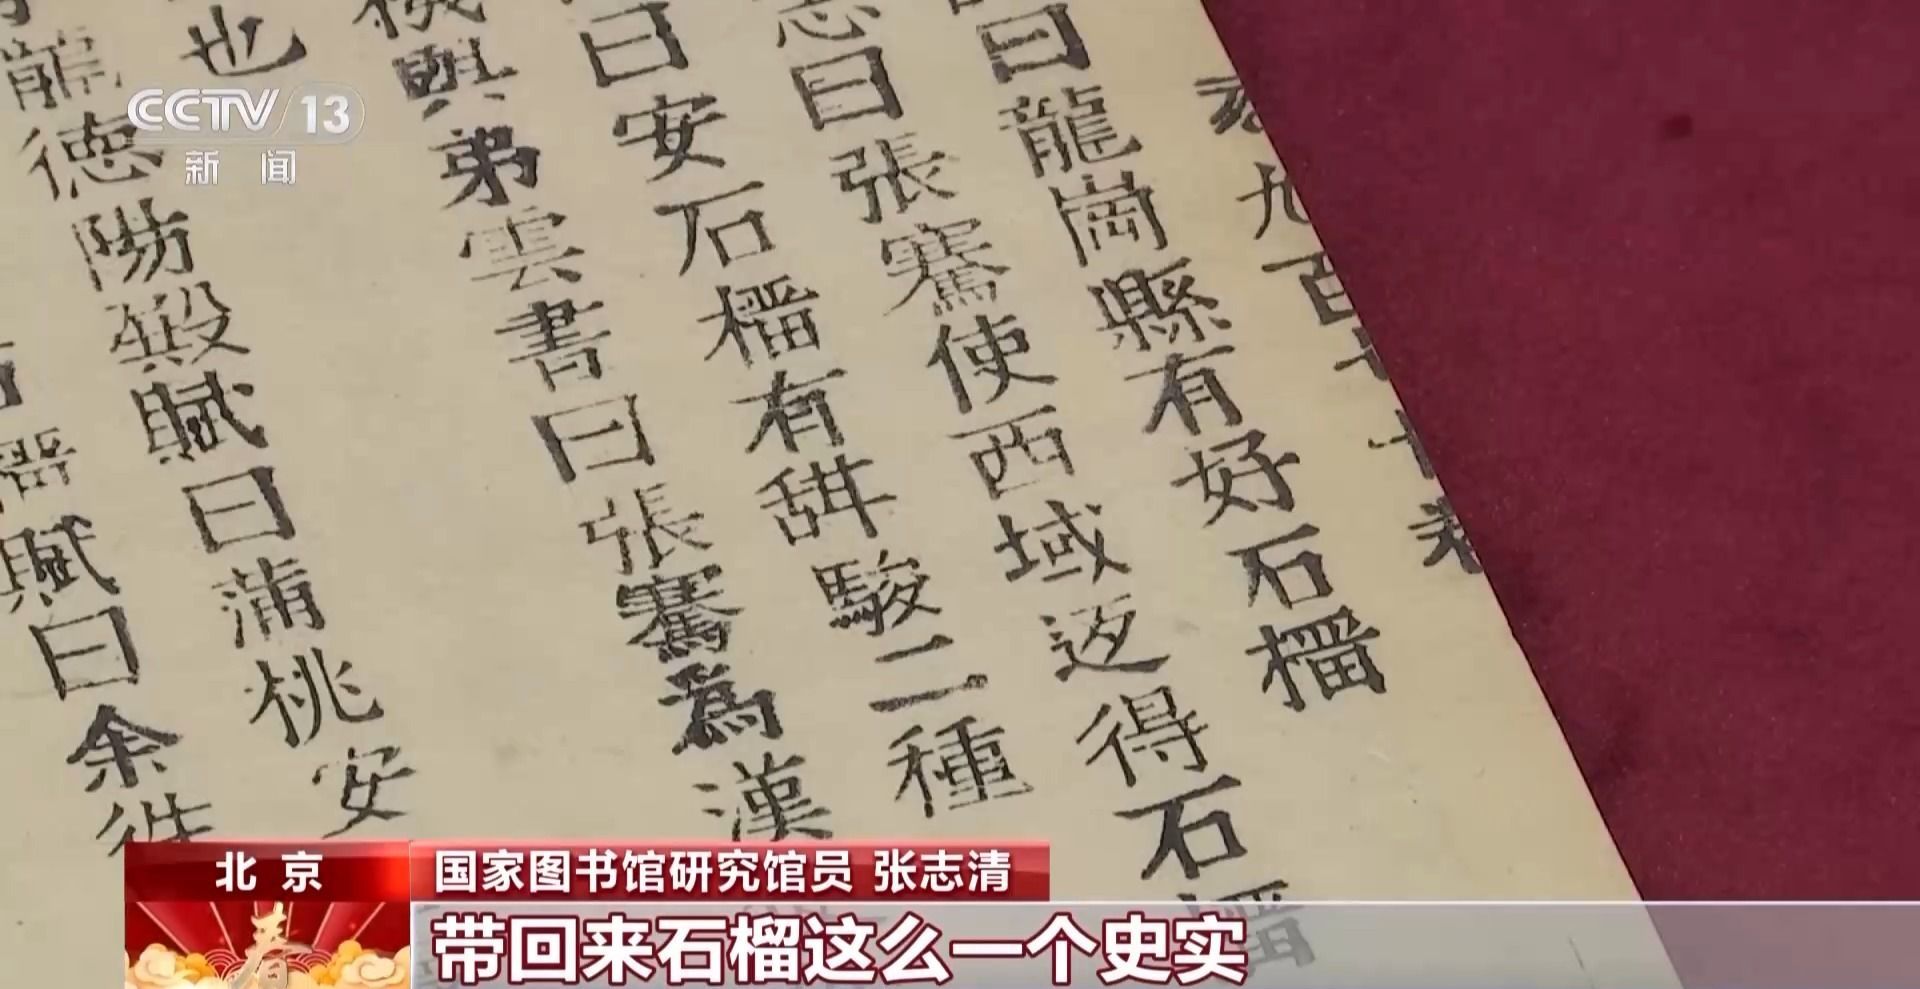 夀九百七十卷
曰龍崗縣有好石橊
志曰張騫使西域迈得石橊
曰安石橊有甜駿二種
機與弟雲書曰張騫為漢
也
龍德陽殿賦曰蒲桃安
橊賦曰余徃
CCTV 13
新闻
北京
国家图书馆研究馆员 张志清
春
带回来石榴这么一个史实